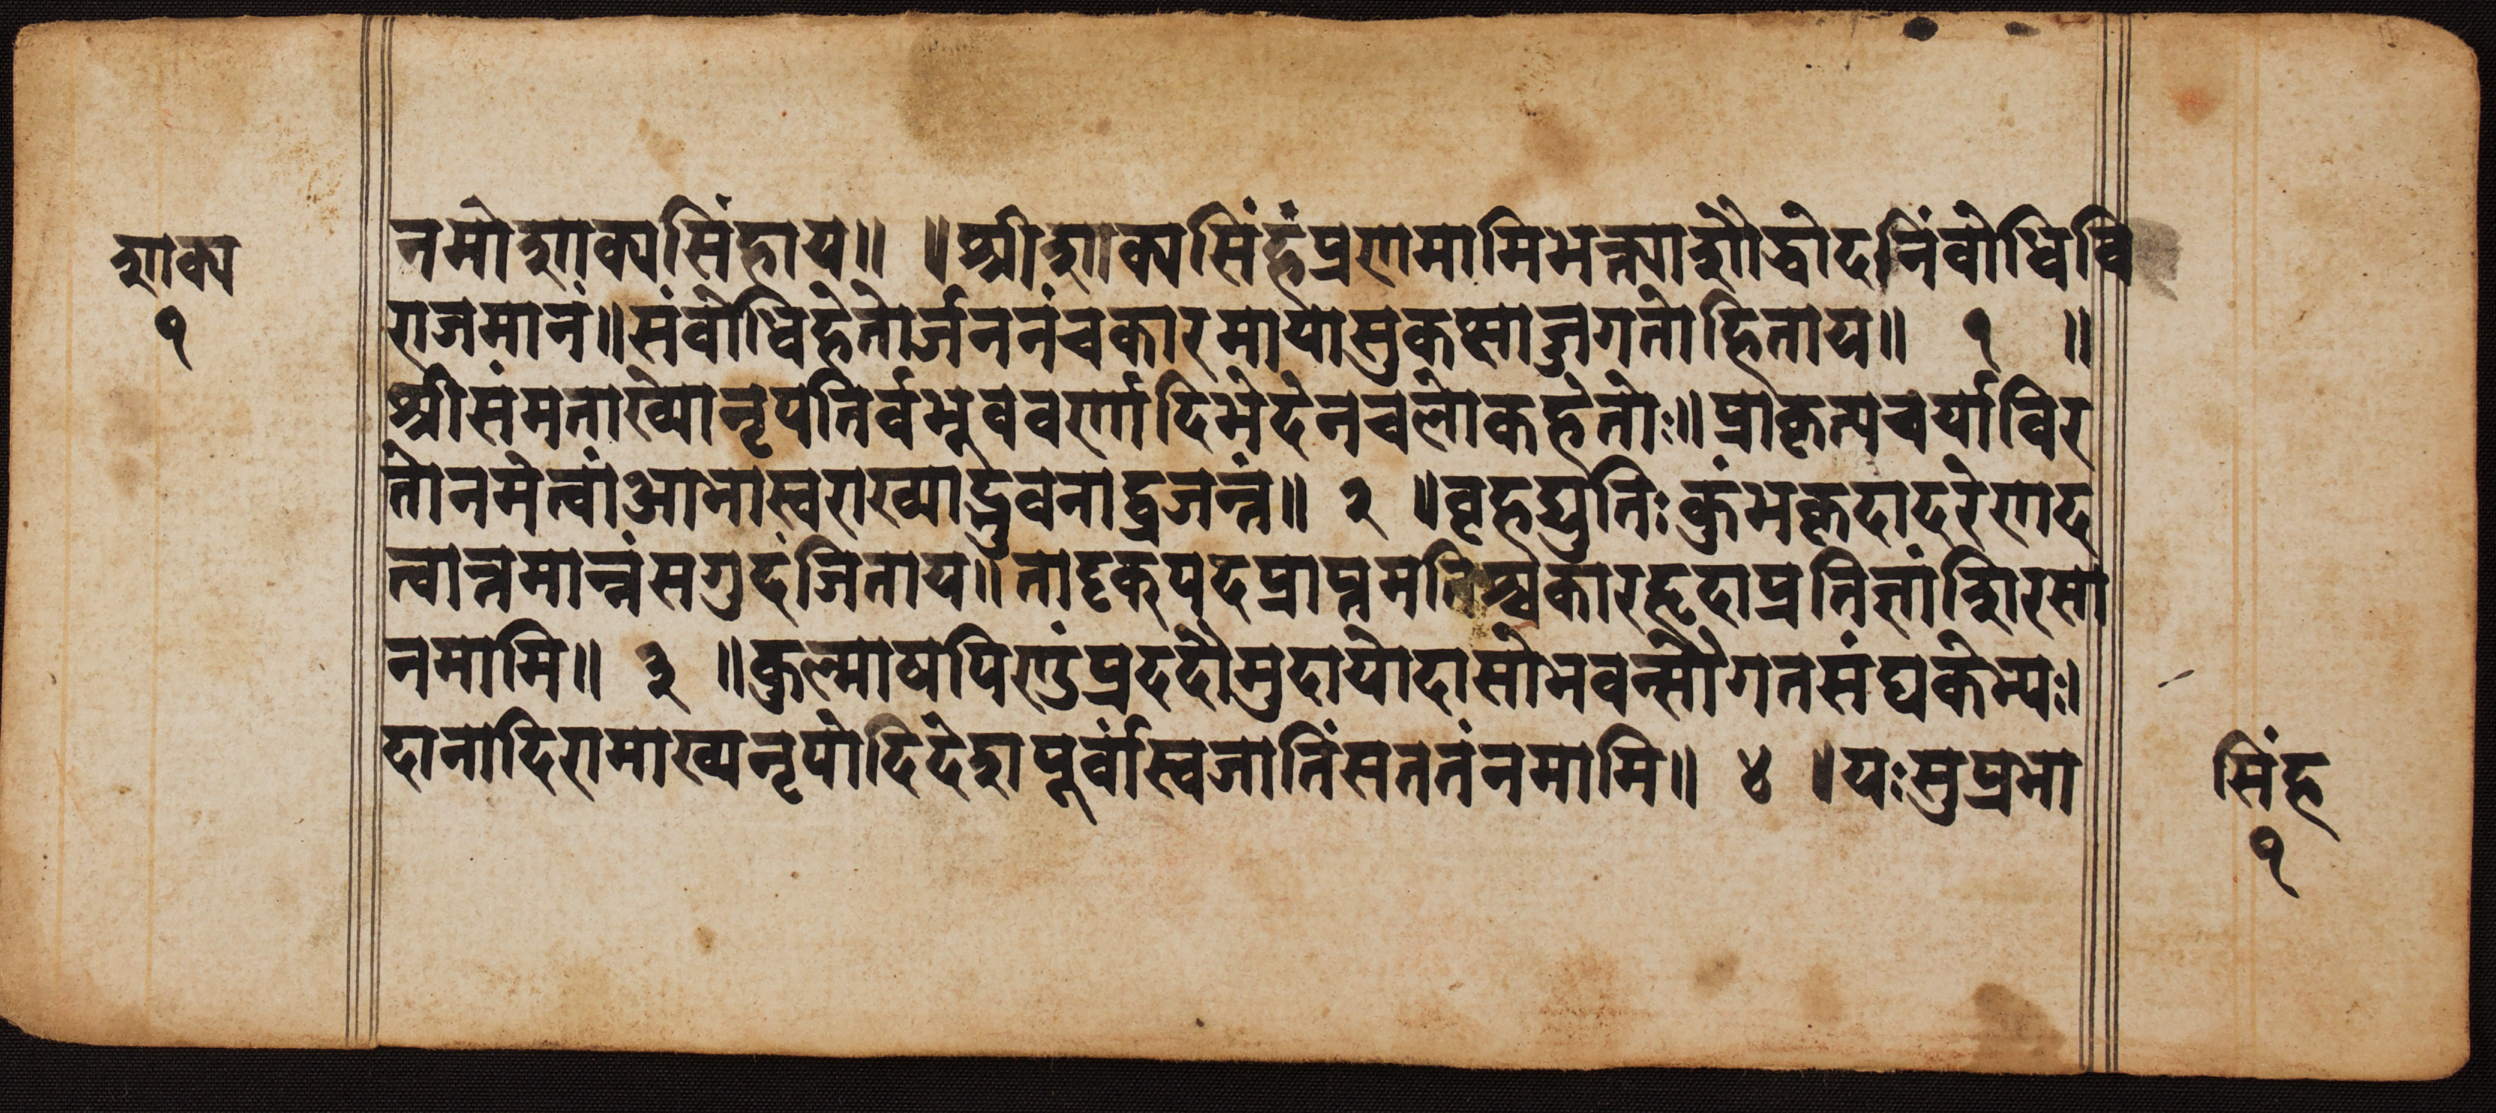 शाक्य
१
नमोशाक्यसिंहाय॥ ॥श्रीशाक्यसिंहंप्रणमामिभक्त्याशौद्धोदनिंवोधिवि
राजमानं॥संवोधिहेतोर्जननंचकारमायासुकुक्षाज्जगतोहिताय॥ १ ॥
श्रीसंमताख्योनृपतिर्वभूववर्णादिभेदेनचलोकहेतोः॥प्राकृत्यचर्याविर
तोनमेत्वांआभास्वराख्याद्भुवनाद्व्रजन्तं॥ २ ॥वृहद्युतिःकुंभकृदादरेणद
त्वान्नमान्नंसगुदंजिताय॥तादृक्पदप्राप्तमतिश्चकारहृदाप्रतिज्ञांशिरसा
नमामि॥ ३ ॥कुल्माषपिण्डंप्रददौमुदायोदासोभवन्सौगतसंघकेभ्यः।
दानादिरामाख्यनृपोदिदेशपूर्वांस्वजातिंसततंनमामि॥ ४ ॥यःसुप्रभा
सिंह
१